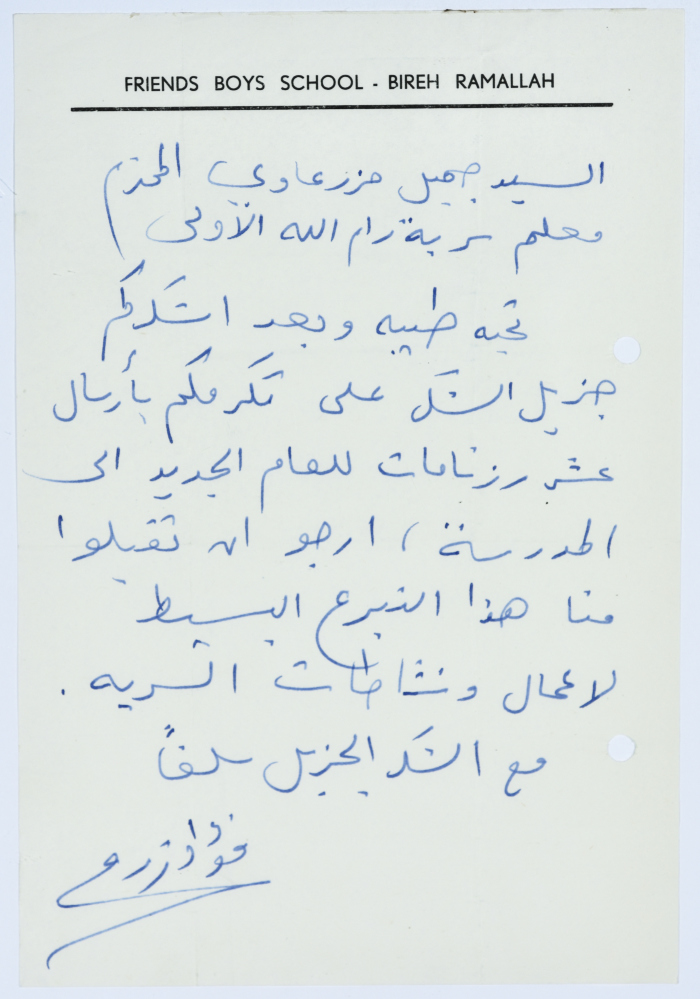 FRIENDS BOYS SCHOOL - BIREH RAMALLAH
السيد جميل حزرعاوي المحترم
معلم سرية رام الله الاولى
تحيه طيبه وبعد اشكركم
جزيل الشكر على تكرمكم بأرسال
عشر رزنامات للعام الجديد الى
المدرسة، ارجو ان تقبلوا
منا هذا التبرع البسيط
لاعمال ونشاطات السريه .
مع الشكر الجزيل سلفاً
فؤاد